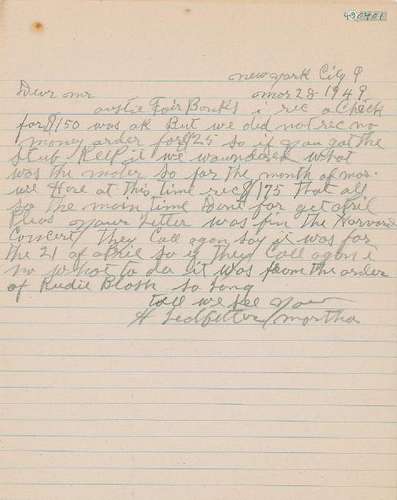 new york City 9
mor 28 - 1949
Dear mr
austie Fair Banks i rec a Check
for $150 was ok But we did not rec no
money order for $25 so if you got the
stub Keep it we waundered what
was the mater so for the month of mar.
we Here at this time rec $175 That all
so the main time Dont for get april
Pleas your Letter was fin the Harvard
Concert They Call agan say it was for
the 21 of aprile so if They Call agan i
no what to do it was from the order
of Rudie Blosh so Long
tell we see you
H Ledbetter/martha